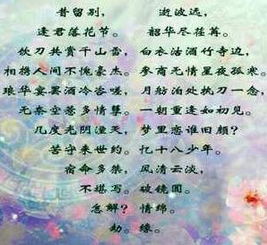 昔留别， 逝波远，
逢君落花节。 韶华尽荏苒。
饮刀共赏千山雪， 白衣沽酒竹寺边，
相携人间不愧豪杰。 参商无情星夜孤寒。
琅华宴罢酒冷咨嗟， 月舫泊处执刀一念，
无奈空惹多情孽。 一朝重逢如初见。
几度光阴湮灭， 梦里恋谁旧颜？
苦守来世约。 忆十八少年。
宿命多桀， 风清云淡，
不堪写。 破镜圆。
怎解？ 情绵。
劫。 缘。